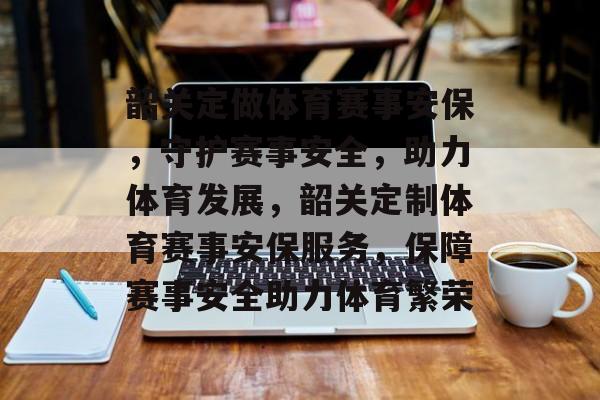 韶关定做体育赛事安保
，守护赛事安全，助力
体育发展，韶关定制体
育赛事安保服务，保障
赛事安全助力体育繁荣